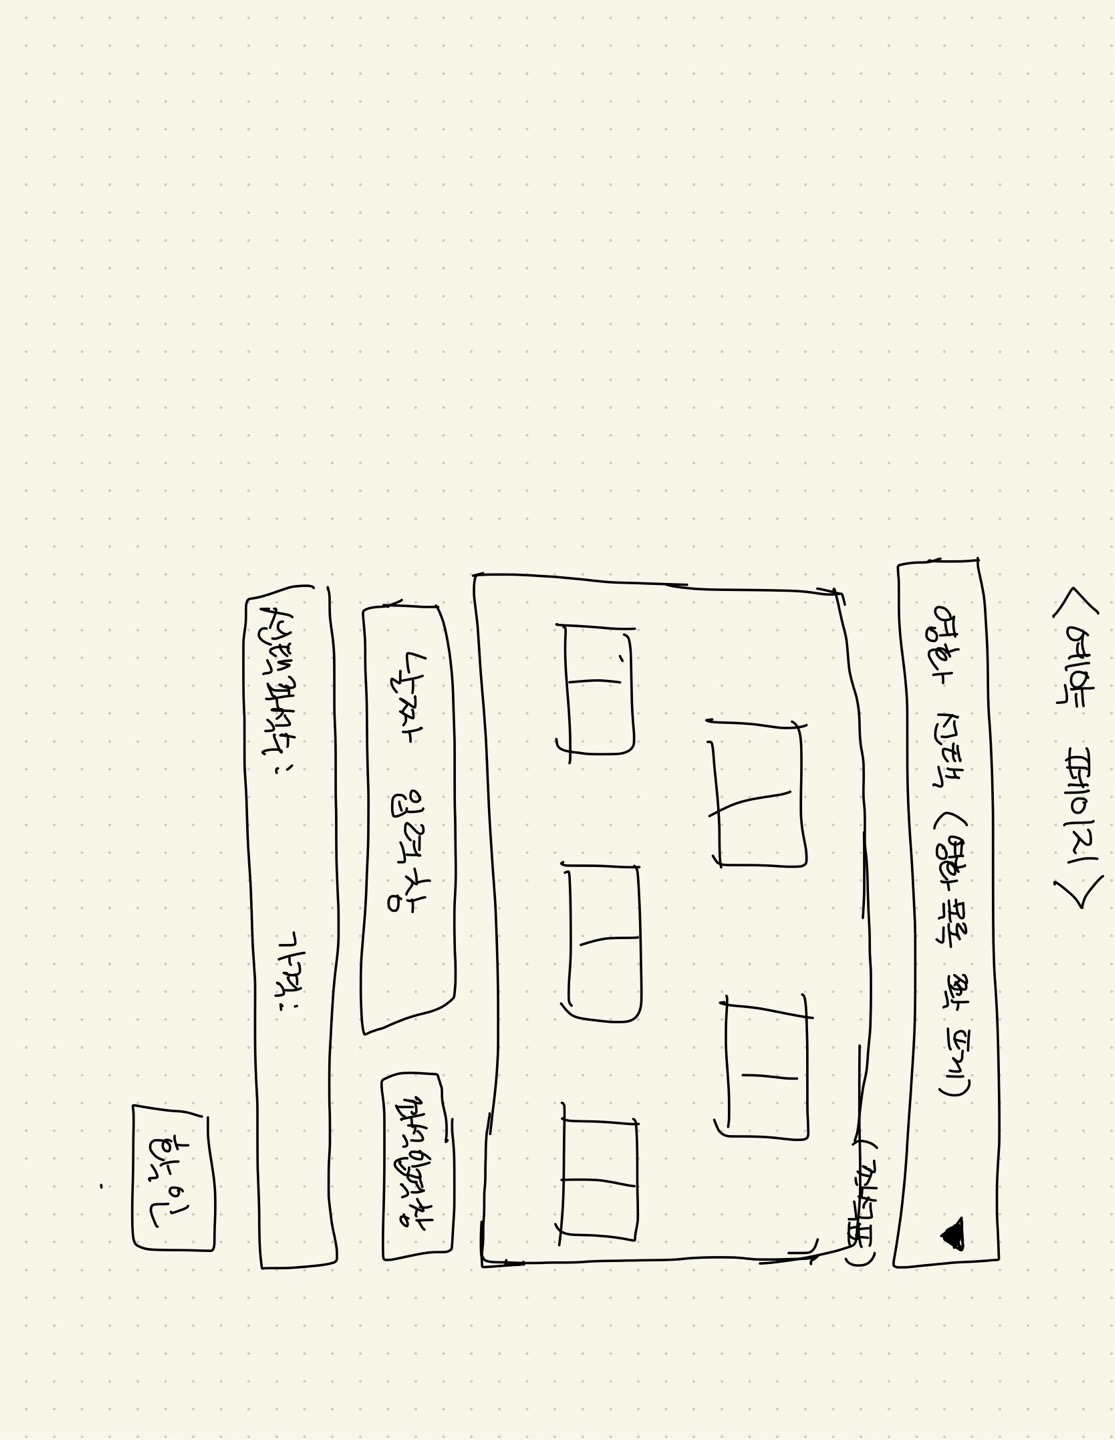 <예약 페이지>
영화 선택 (영화목록 쫙 뜨게)
(좌석표)
날짜 입력창
좌석입력창
선택좌석수:
가격:
확인